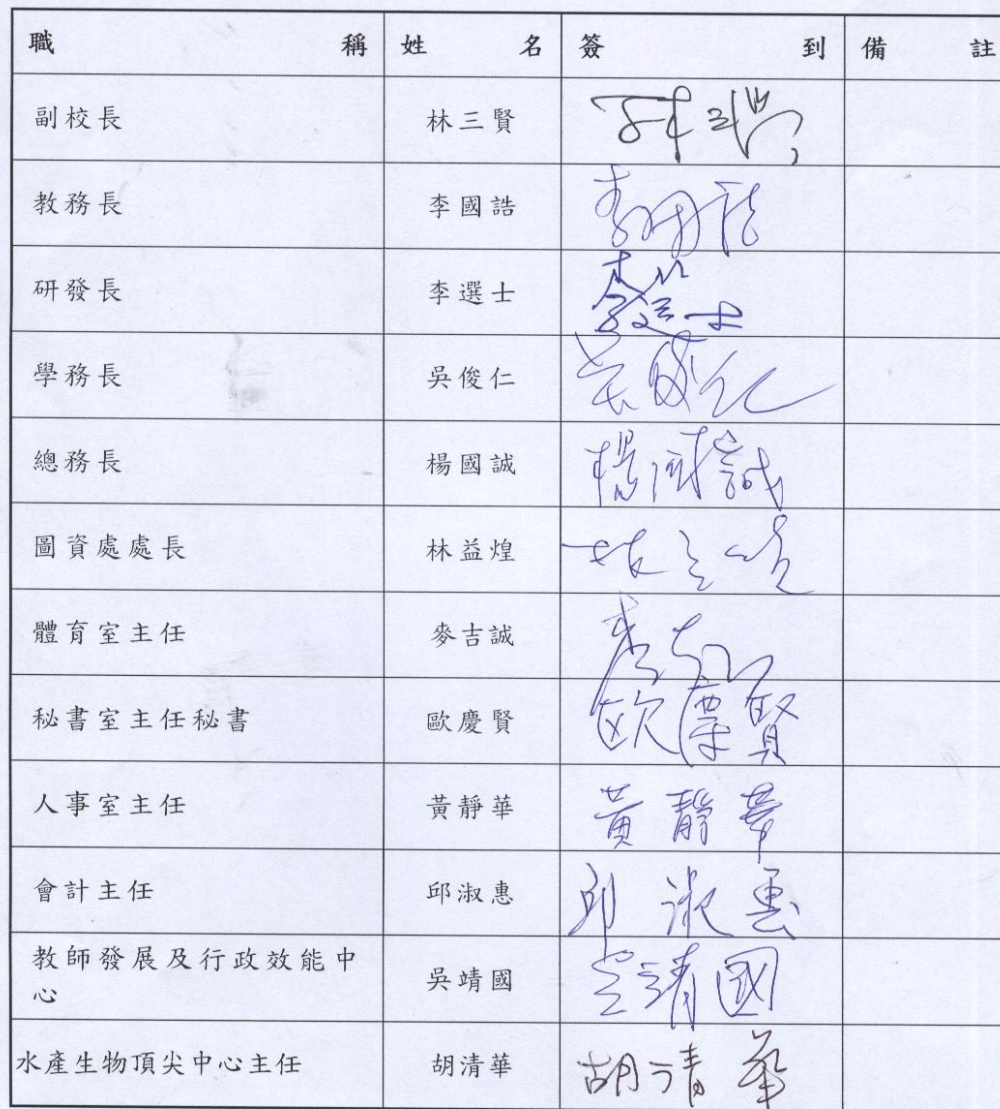 職稱 姓名 簽到 備註
副校長 林三賢 林三賢
教務長 李國誥 李國誥
研發長 李選士 李選士
學務長 吳俊仁 吳俊仁
總務長 楊國誠 楊國誠
圖資處處長 林益煌 林益煌
體育室主任 麥吉誠
秘書室主任秘書 歐慶賢 歐慶賢
人事室主任 黃靜華 黃靜華
會計主任 邱淑惠 邱淑惠
教師發展及行政效能中
心 吳靖國 吳靖國
水產生物頂尖中心主任 胡清華 胡清華